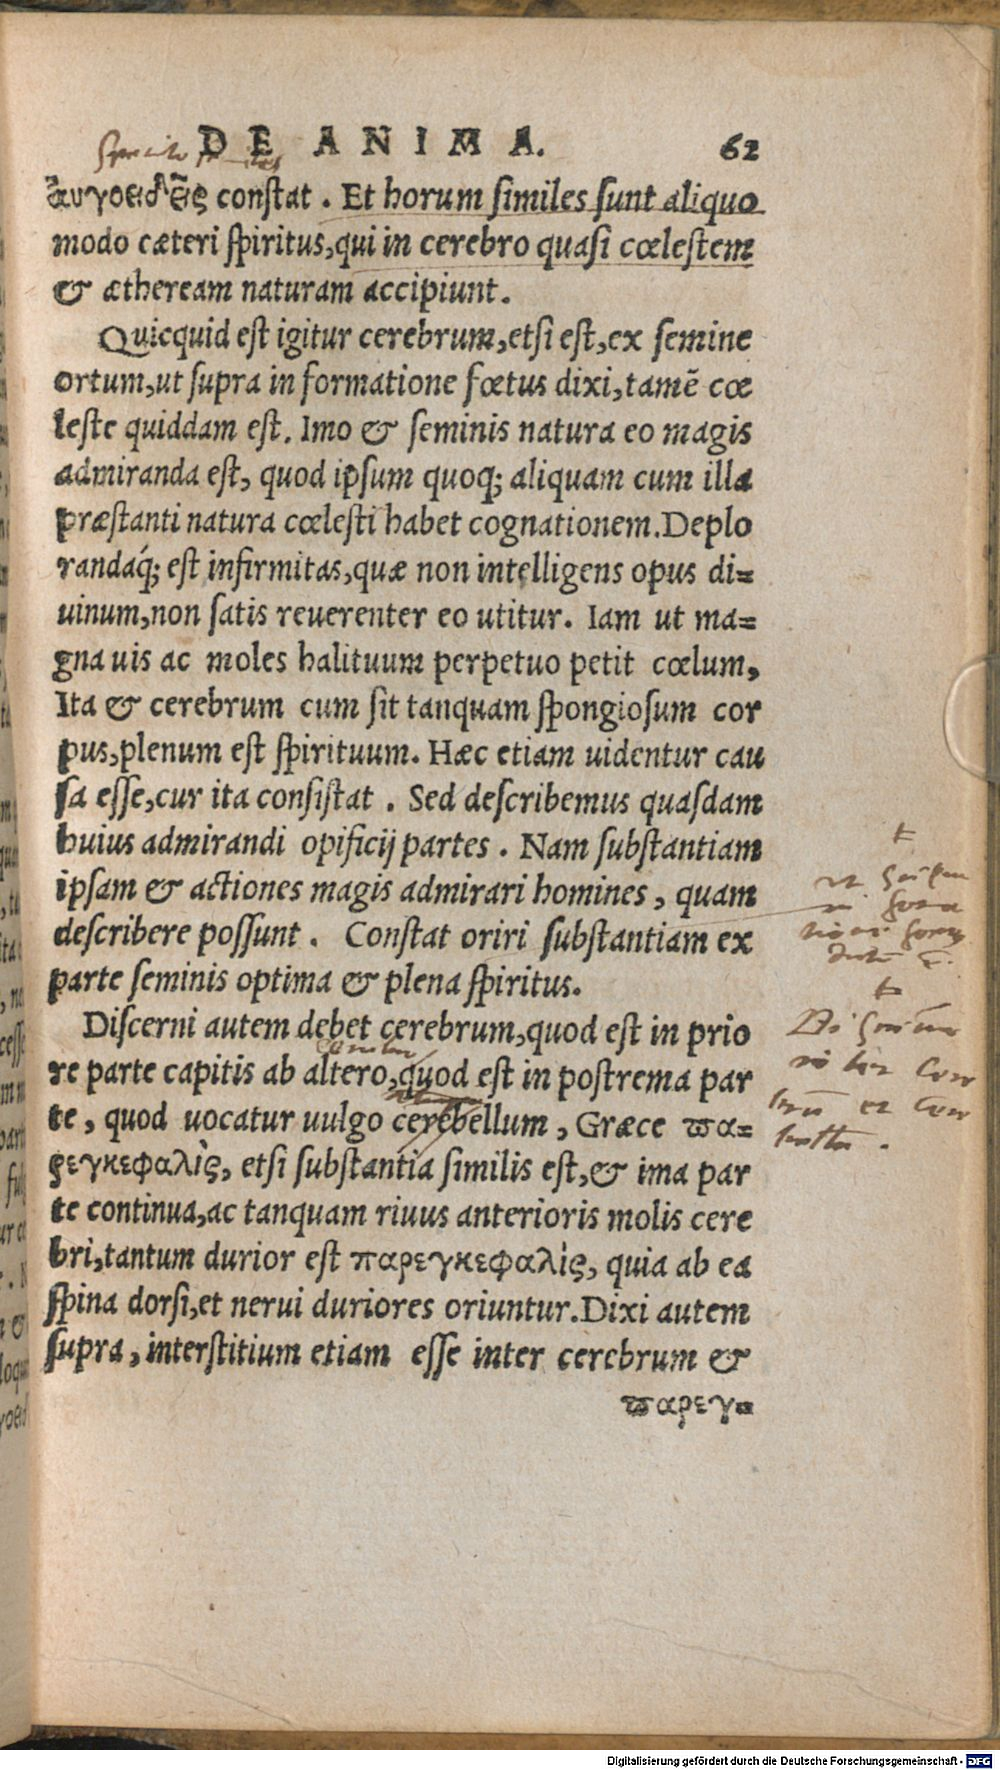 DE ANIMA. 62
αὐγοειδὲς constat. Et horum similes sunt aliquo
modo cæteri spiritus, qui in cerebro quasi cœlestem
& ætheream naturam accipiunt.
Quicquid est igitur cerebrum, etsi est, ex semine
ortum, ut supra in formatione fœtus dixi, tamē cœ
leste quiddam est. Imo & seminis natura eo magis
admiranda est, quod ipsum quoq; aliquam cum illa
præstanti natura cœlesti habet cognationem. Deplo
randaq́; est infirmitas, quæ non intelligens opus di=
uinum, non satis reuerenter eo utitur. Iam ut ma=
gna uis ac moles halituum perpetuo petit cœlum,
Ita & cerebrum cum sit tanquam spongiosum cor
pus, plenum est spirituum. Hæc etiam uidentur cau
sa esse, cur ita consistat. Sed describemus quasdam
huius admirandi opificij partes. Nam substantiam
ipsam & actiones magis admirari homines, quam
describere possunt. Constat oriri substantiam ex
parte seminis optima & plena spiritus.
Discerni autem debet cerebrum, quod est in prio
re parte capitis ab altero, quod est in postrema par
te, quod uocatur uulgo cerebellum, Græce ϖα=
ρεγκεφαλὶς, etsi substantia similis est, & ima par
te continua, ac tanquam riuus anterioris molis cere
bri, tantum durior est παρεγκεφαλὶς, quia ab ea
spina dorsi, et nerui duriores oriuntur. Dixi autem
supra, interstitium etiam esse inter cerebrum &
ϖαρεγ=
Digitalisierung gefördert durch die Deutsche Forschungsgemeinschaft - DFG